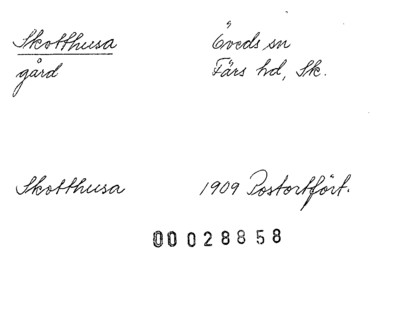 Skotthusa Öveds sn
gård Färs hd, Sk.
Skotthusa 1909 Postortfört.
00 028858